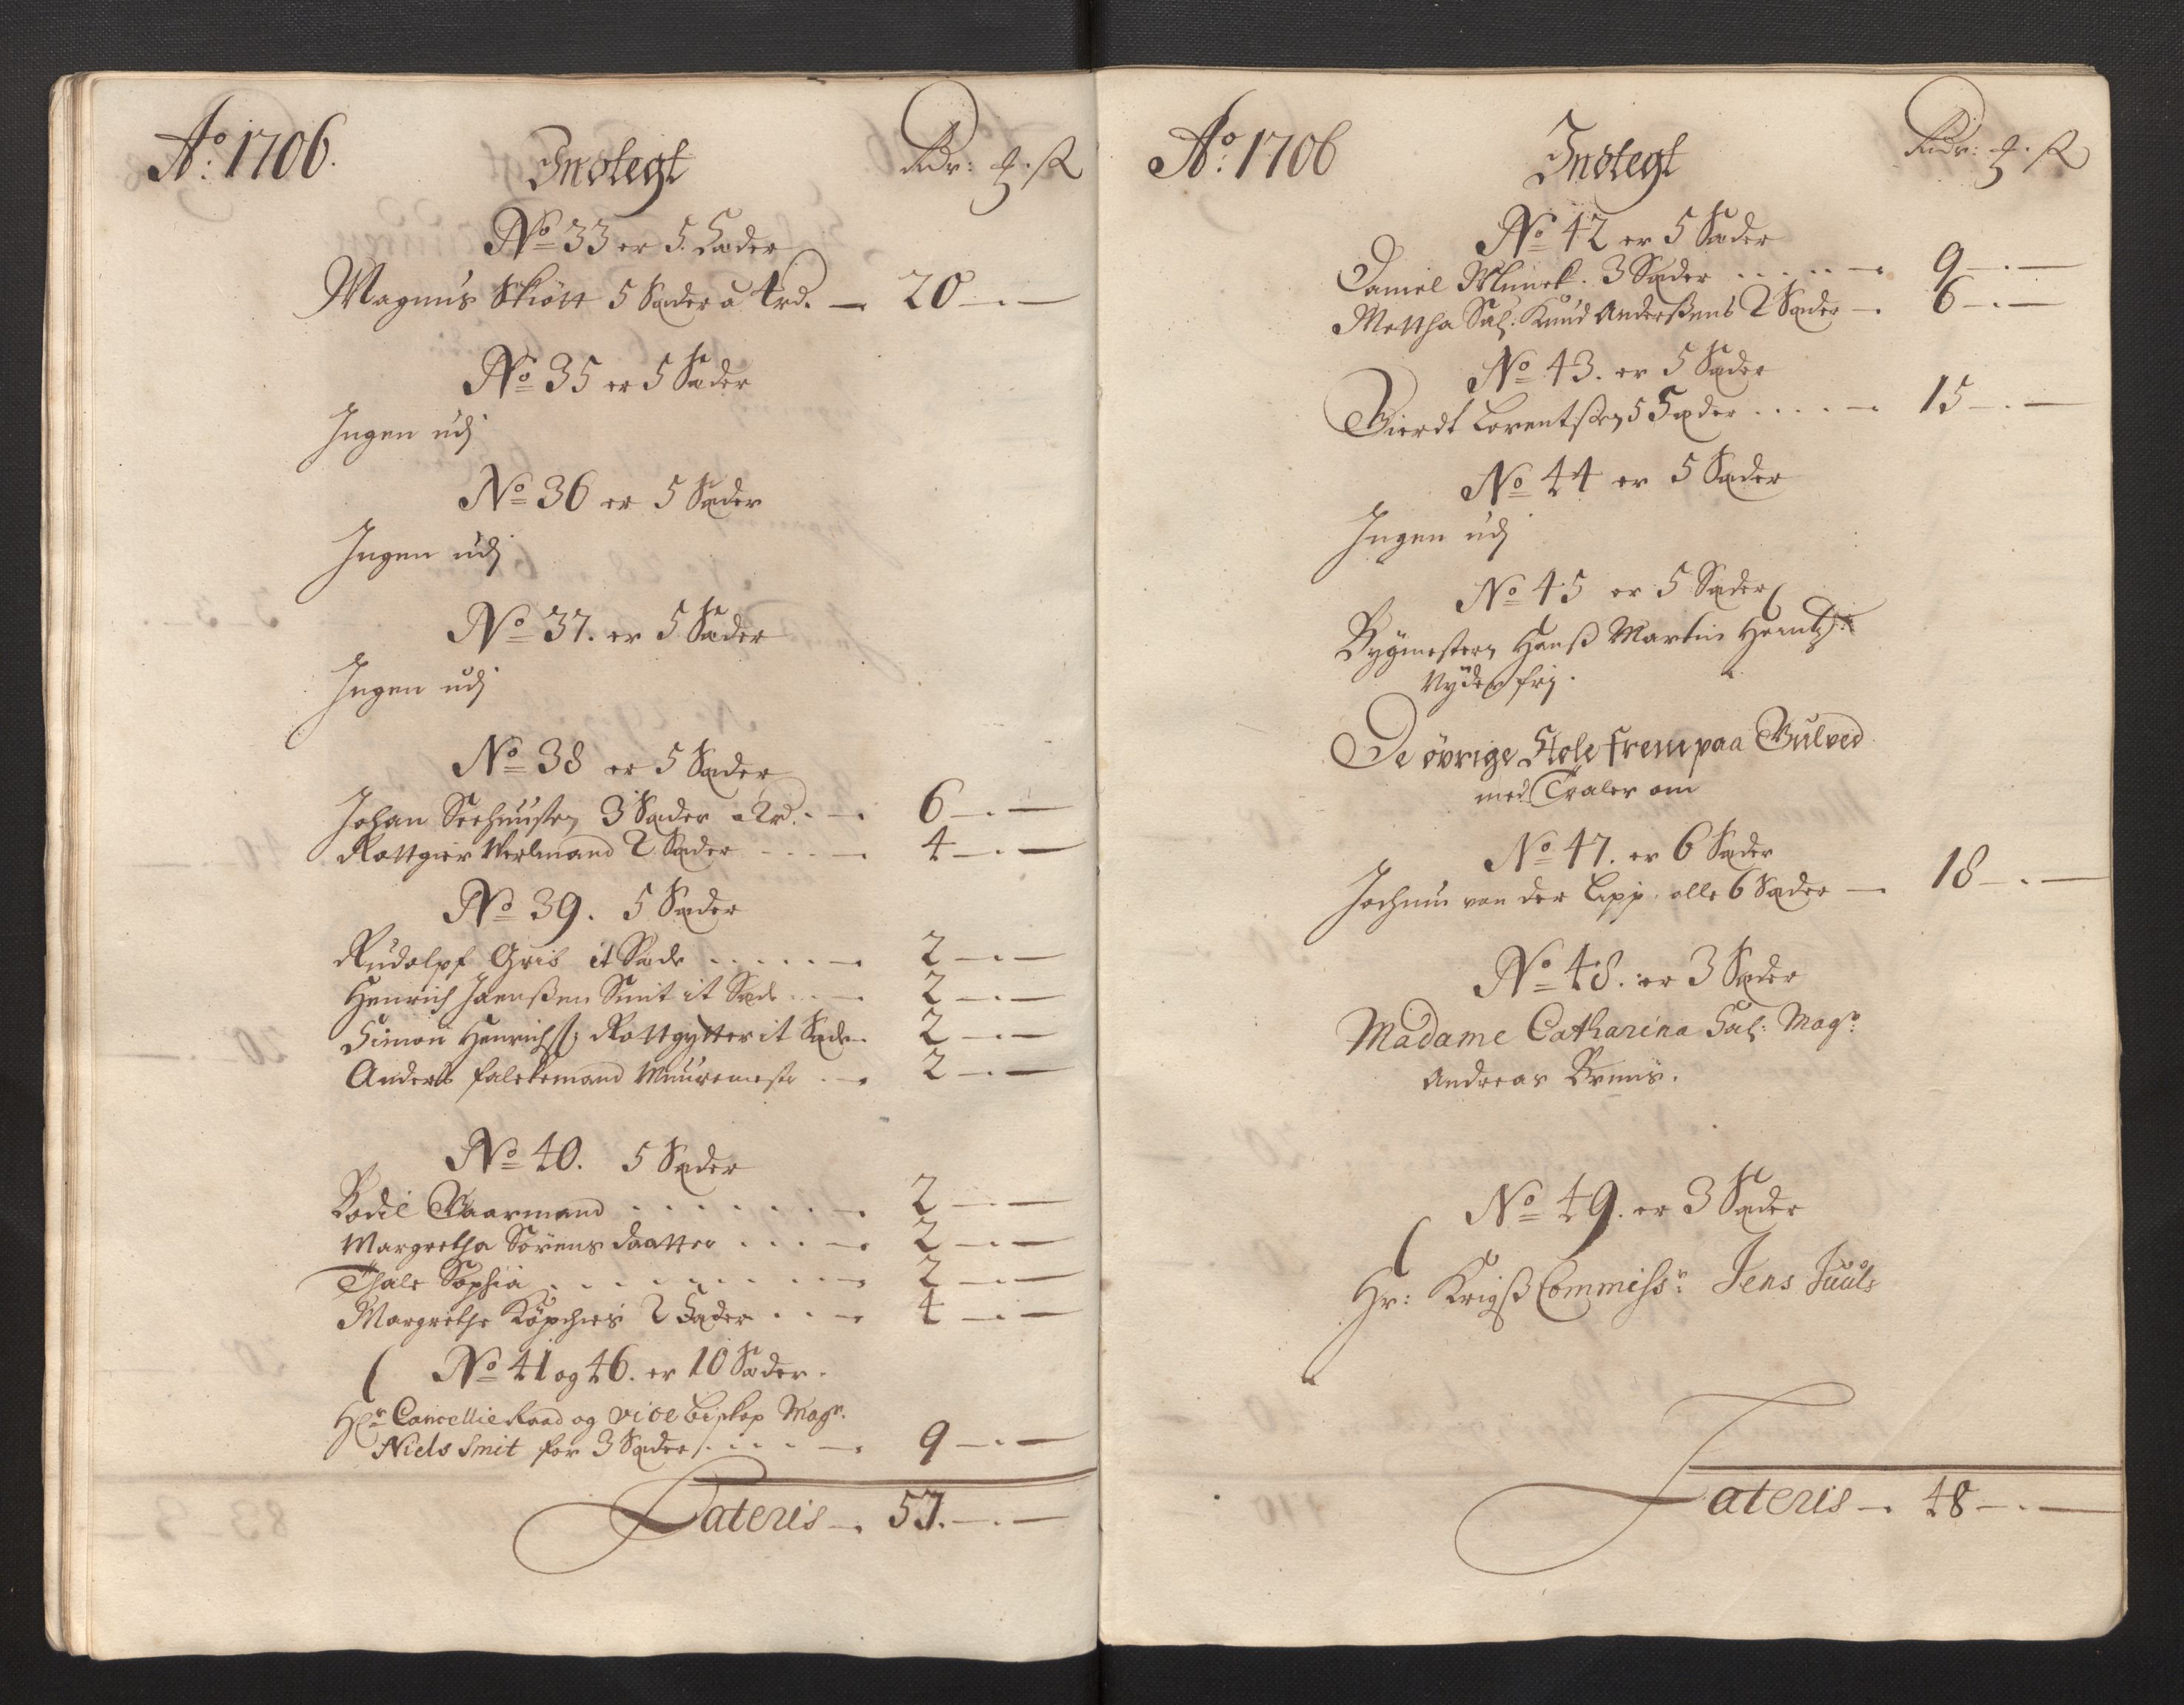 Ao: 1706.
Indtegt
Rdr: ꝳ. ß
No 33 er 5. Sæder
Magnus Skiött 5 Sæder a 4rd. — 20 — . —
No 35 er 5 Sæder
Ingen udj
No 36 er 5 Sæder
Ingen udj
No 37. er 5 Sæder
Ingen udj
No 38 er 5 Sæder
Johan Seehuusen 3 Sæder a 2rd. — 6 — . —
Rottgier Werlmand 2 Sæder — 4 — . —
No 39. 5 Sæder
Rudolpf Gris it Sæde . . . . . — 2 — . —
Henrich Jaenßen Smit it Sæde . . — 2 — . —
Simon Henrichs: Rottgytter it Sæde. 2 — . —
Anders falckemand Muuremest: . — 2 — . —
No 40. 5 Sæder
Bodil Gaarmand . . . . . . . 2 — . —
Margretha Sörens daatter . . . — 2 — . —
Thale Sophia . . . . . . . . — 2 — . —
Margrethe Köpches 2 Sæder . . — 4 — . —
No 41 og 46. er 10 Sæder.
Hr: Cancellie Raad og vice biskop Magr.
Niels Smit for 3 Sæder . . . . — 9 — . —
Lateris — . 57. — . —
Ao: 1706
Indtegt
Rdr: ꝳ. ß
No 42 er 5 Sæder
Daniel Munck. 3 Sæder . . . . . — 9 — . —
Mettha Sal: Knud Anderßens 2 Sæder — . 6 — . —
No 43. er 5 Sæder
Gierdt Lorentsen 5 Sæder . . . . — 15 — . —
No 44 er 5 Sæder
Ingen udj
No 45 er 5 Sæder
Bygmesteren Hanß Martin Heintz:
Nyder frj.
De øvrige Stole frem paa Gulved
med Traler om
No 47. er 6 Sæder
Jochum von der Lipp alle 6 Sæder — . 18 — . —
No 48. er 3 Sæder
Madame Catharina Sal: Magr:
Andreas Bruus.
No 49. er 3 Sæder
Hr: Krigß Commissr: Jens Juuls
Lateris — . 48 — . —